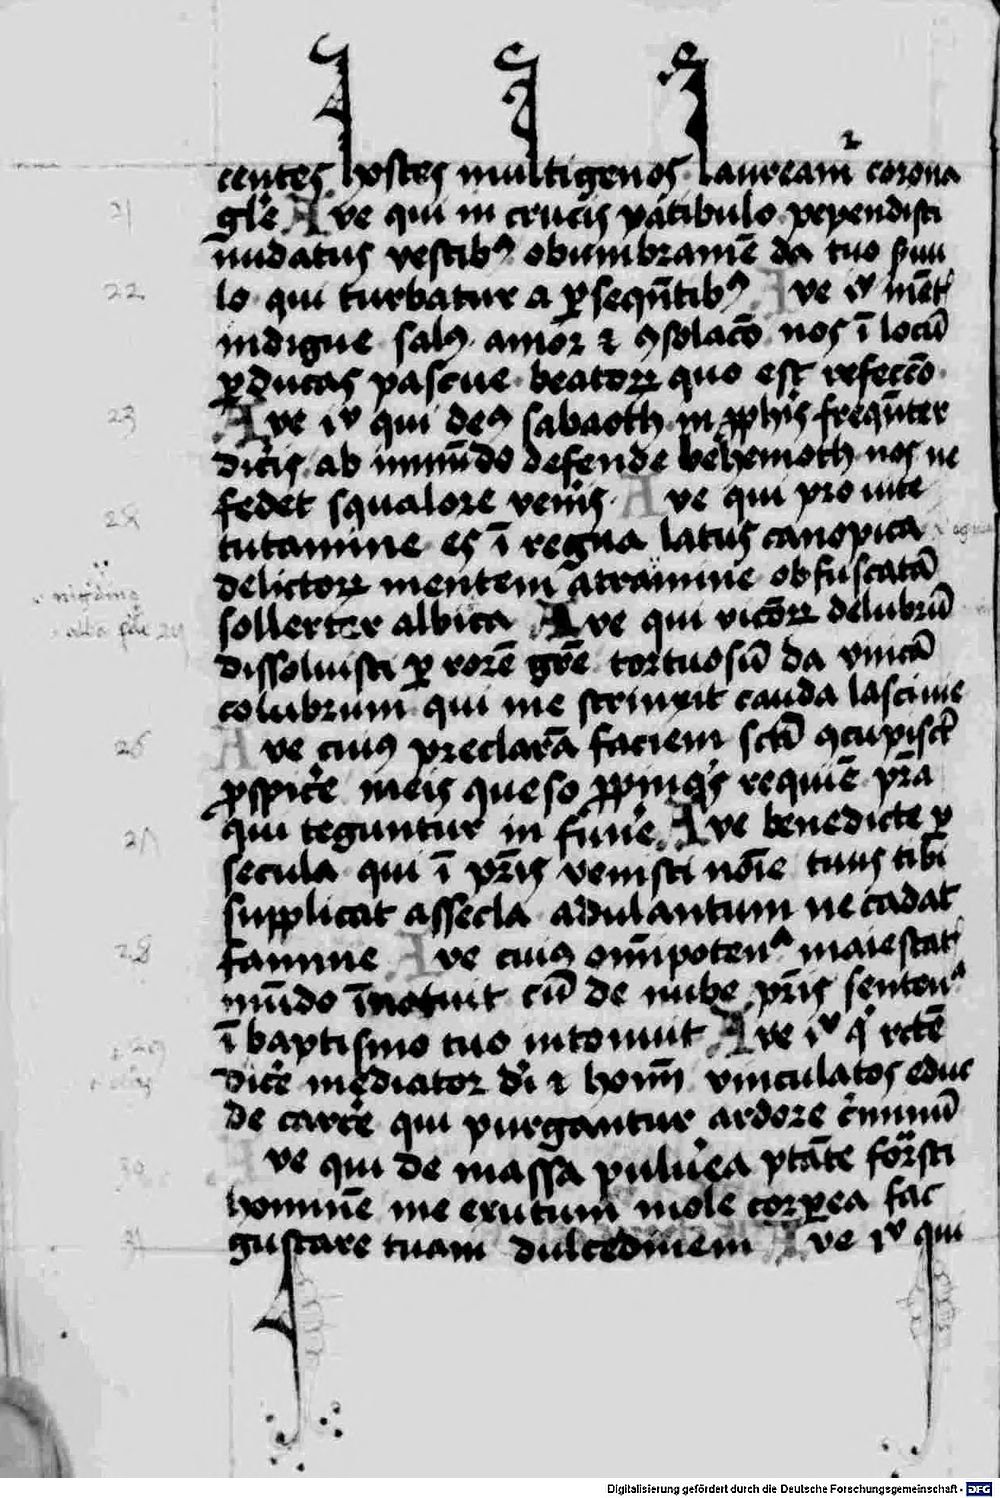 centes hostes multigenos lauream corona
glē Ave qui in crucis patibulo pependisti
nudatus vestibꝰ obumbramē da tuo
lo qui turbatur a ꝑseqūtibꝰ Ave
indigne salꝰ amor ⁊ ꝯsolacō nos ī locū
ꝑducas pascue beatoꝝ quo est refeccō
Ave qui deꝰ sabaoth in frequēter
diceris ab immūdo defende behemoth nos ne
fedet squalore venis Ave qui pro vite
tutamine es ī regna latus canopica
delictoꝝ mentem atramine obfuscatā
sollerter albica Ave qui delubrū
dissoluisti ꝑ rorē grē tortuosū da vincā
colubrum qui me strinxit cauda lasciue
Ave cuiꝰ preclarā faciem sctā
ꝓspice meis queso requiē prā
qui teguntur in funē Ave benedicte ꝑ
secula qui ī pris venisti noīe tuus tibi
supplicat assecla adulantum ne cadat
famine Ave cuiꝰ omipotenᵃ maiestat
mūdo īnotuit cū de nube pris sentenᵃ
ī baptismo tuo intonuit Ave rctē
dicē mediator di ⁊ homī vinculatos educ
de carcē qui purgantur ardore cīminū
Ave qui de massa puluea ptāte formasti
hominē me erutum mole corꝑea fac
gustare tuam dulcedinem Ave qui
21
22
23
26
28
Digitalisierung gefördert durch die Deutsche Forschungsgemeinschaft - DFG